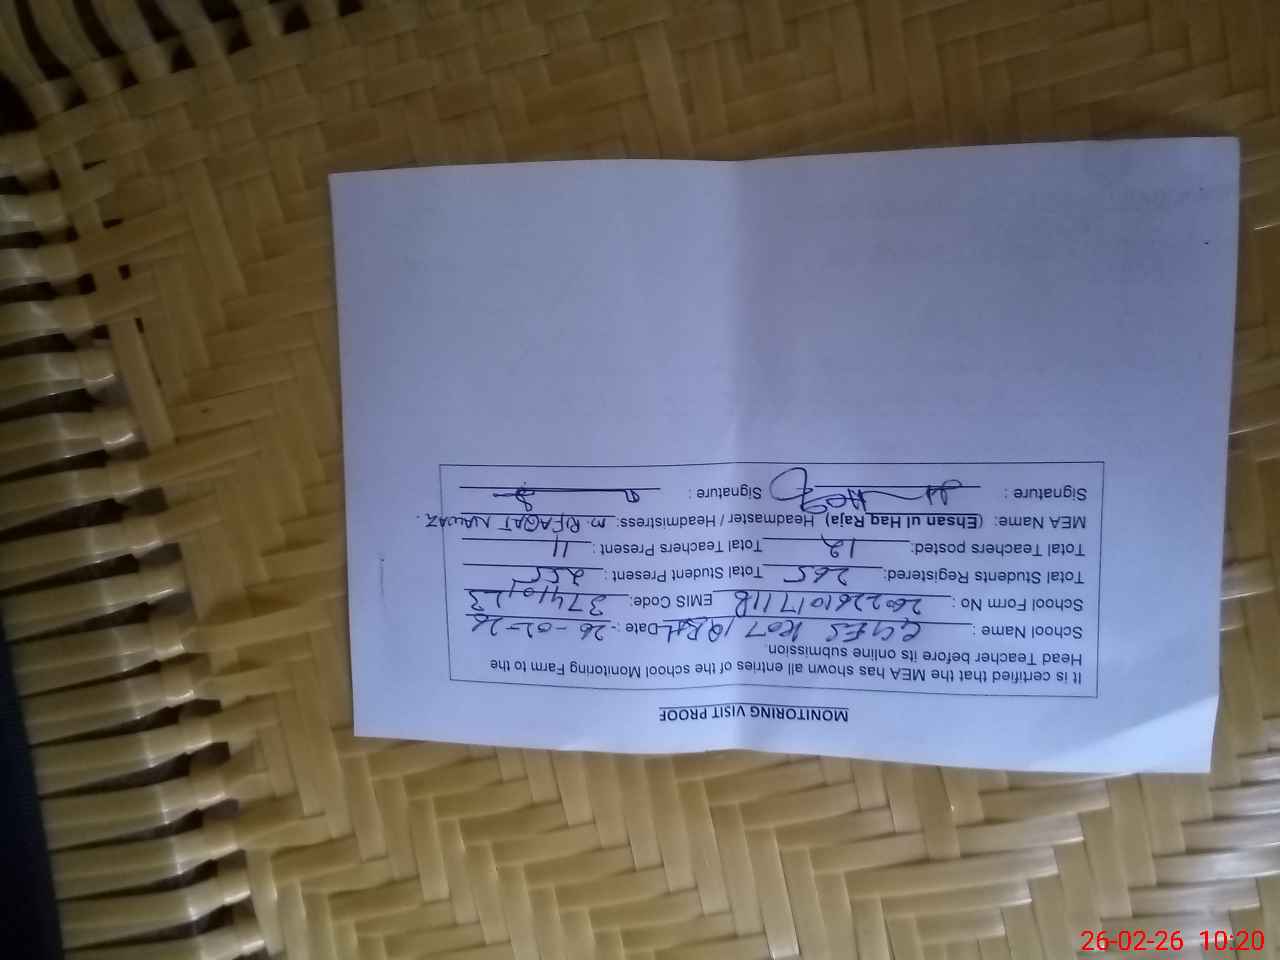 MONITORING VISIT PROOF
It is certified that the MEA has shown all entries of the school Monitoring Farm to the
Head Teacher before its online submission.
School Name : GGES KOT Date : 26-02-26
School Form No : EMIS Code: 37410123
Total Students Registered: 265 Total Student Present : 255
Total Teachers posted: 12 Total Teachers Present : 11
MEA Name: (Ehsan ul Haq Raja) Headmaster / Headmistress: M. RIFAQAT NAWAZ.
Signature : Signature :
26-02-26 10:20